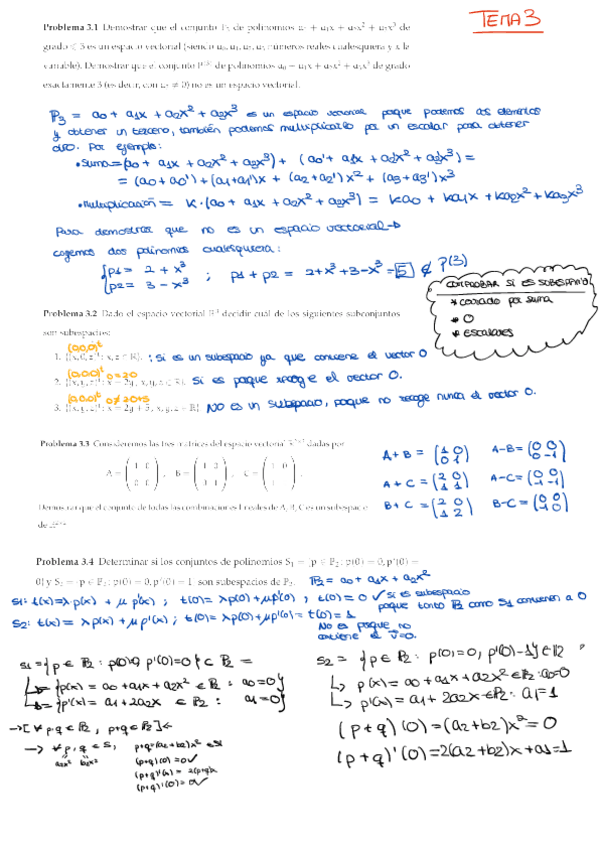 TEMA 3
Problema 3.1 Demostrar que el conjunto P₃ de polinomios a₀ + a₁x + a₂x² + a₃x³ de
grado ≤ 3 es un espacio vectorial (siendo a₀, a₁, a₂, a₃ números reales cualesquiera y x la
variable). Demostrar que el conjunto P⁽³⁾ de polinomios a₀ + a₁x + a₂x² + a₃x³ de grado
exactamente 3 (es decir, con a₃ ≠ 0) no es un espacio vectorial.
P₃ = a₀ + a₁x + a₂x² + a₃x³ es un espacio vectorial porque podemos los elementos
y obtener un tercero, también podemos multiplicarlo por un escalar para obtener
otro. Por ejemplo:
• Suma = (a₀ + a₁x + a₂x² + a₃x³) + (a₀' + a₁'x + a₂'x² + a₃'x³) =
= (a₀+a₀') + (a₁+a₁')x + (a₂+a₂')x² + (a₃+a₃')x³
• Multiplicación = K·(a₀ + a₁x + a₂x² + a₃x³) = Ka₀ + Ka₁x + Ka₂x² + Ka₃x³
Para demostrar que no es un espacio vectorial →
cogemos dos polinomios cualesquiera:
{p1 = 2 + x³
p2 = 3 - x³ ; p1 + p2 = 2+x³+3-x³ = 5 ∉ P(3)
COMPROBAR SI ES SUBESPACIO
* cerrado por suma
* 0
* escalares
Problema 3.2 Dado el espacio vectorial ℝ³ decidir cuál de los siguientes subconjuntos
son subespacios:
(0,0,0)ᵗ
1. {(x, 0, z)ᵗ : x, z ∈ ℝ}. : si es un subespacio ya que contiene el vector 0
(0,0,0)ᵗ 0=2·0
2. {(x, y, z)ᵗ : x = 2y, x, y, z ∈ ℝ}. si es porque recoge el vector 0.
(0,0,0)ᵗ 0≠2·0+5
3. {(x, y, z)ᵗ : x = 2y + 5, x, y, z ∈ ℝ} NO es un subespacio, porque no recoge nunca el vector 0.
Problema 3.3 Consideremos las tres matrices del espacio vectorial dadas por
A = , B = , C = .
Demostrar que el conjunto de todas las combinaciones lineales de A, B, C es un subespacio
de
A+B = (1 0 / 0 1) A-B = (0 0 / 0 -1)
A+C = (2 0 / 1 1) A-C = (0 0 / -1 -1)
B+C = (2 0 / 1 2) B-C = (0 0 / -1 0)
Problema 3.4 Determinar si los conjuntos de polinomios S₁ = {p ∈ P₂ : p(0) = 0, p'(0) =
0} y S₂ = {p ∈ P₂ : p(0) = 0, p'(0) = 1} son subespacios de P₂. P₂ = a₀ + a₁x + a₂x²
S1: t(x)=λp(x) + μp'(x) ; t(0)= λp(0)+μp'(0) , t(0) = 0 ✓ si es subespacio
porque tanto P₂ como S1 contienen a 0
S2: t(x) = λp(x) + μp'(x) ; t(0)= λp(0)+μp'(0) = t(0) = 1
No es porque no
contiene el v=0.
S1 = {p ∈ P₂ : p(0)=0, p'(0)=0} ⊂ P₂ =
↳ = {p(x) = a₀ + a₁x + a₂x² ∈ P₂ : a₀=0}
↳ = {p'(x) = a₁ + 2a₂x ∈ P₂ : a₁=0}
→ [∀ p,q ∈ P₂ , p+q ∈ P₂] ←
→ ∀ p,q ∈ S₁ p+q=(a₂+b₂)x² ∈ S1
a₂x² b₂x² (p+q)(0) = 0 ✓
(p+q)'(x) = 2(p+q)x
(p+q)'(0) = 0 ✓
S2 = {p ∈ P₂ : p(0)=0, p'(0)=1} ∈ P₂
↳ p(x) = a₀ + a₁x + a₂x² ∈ P₂ : a₀=0
↳ p'(x) = a₁ + 2a₂x ∈ P₂ : a₁=1
(p+q)(0) = (a₂+b₂)x² = 0
(p+q)'(0) = 2(a₂+b₂)x + a₁ = 1